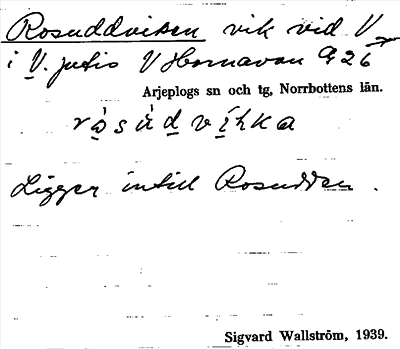 Rosuddviken vik vid V
i V. Jutis V Hornavan G 26
Arjeplogs sn och tg, Norrbottens län.
Ligger intill Rosudden.
Sigvard Wallström, 1939.